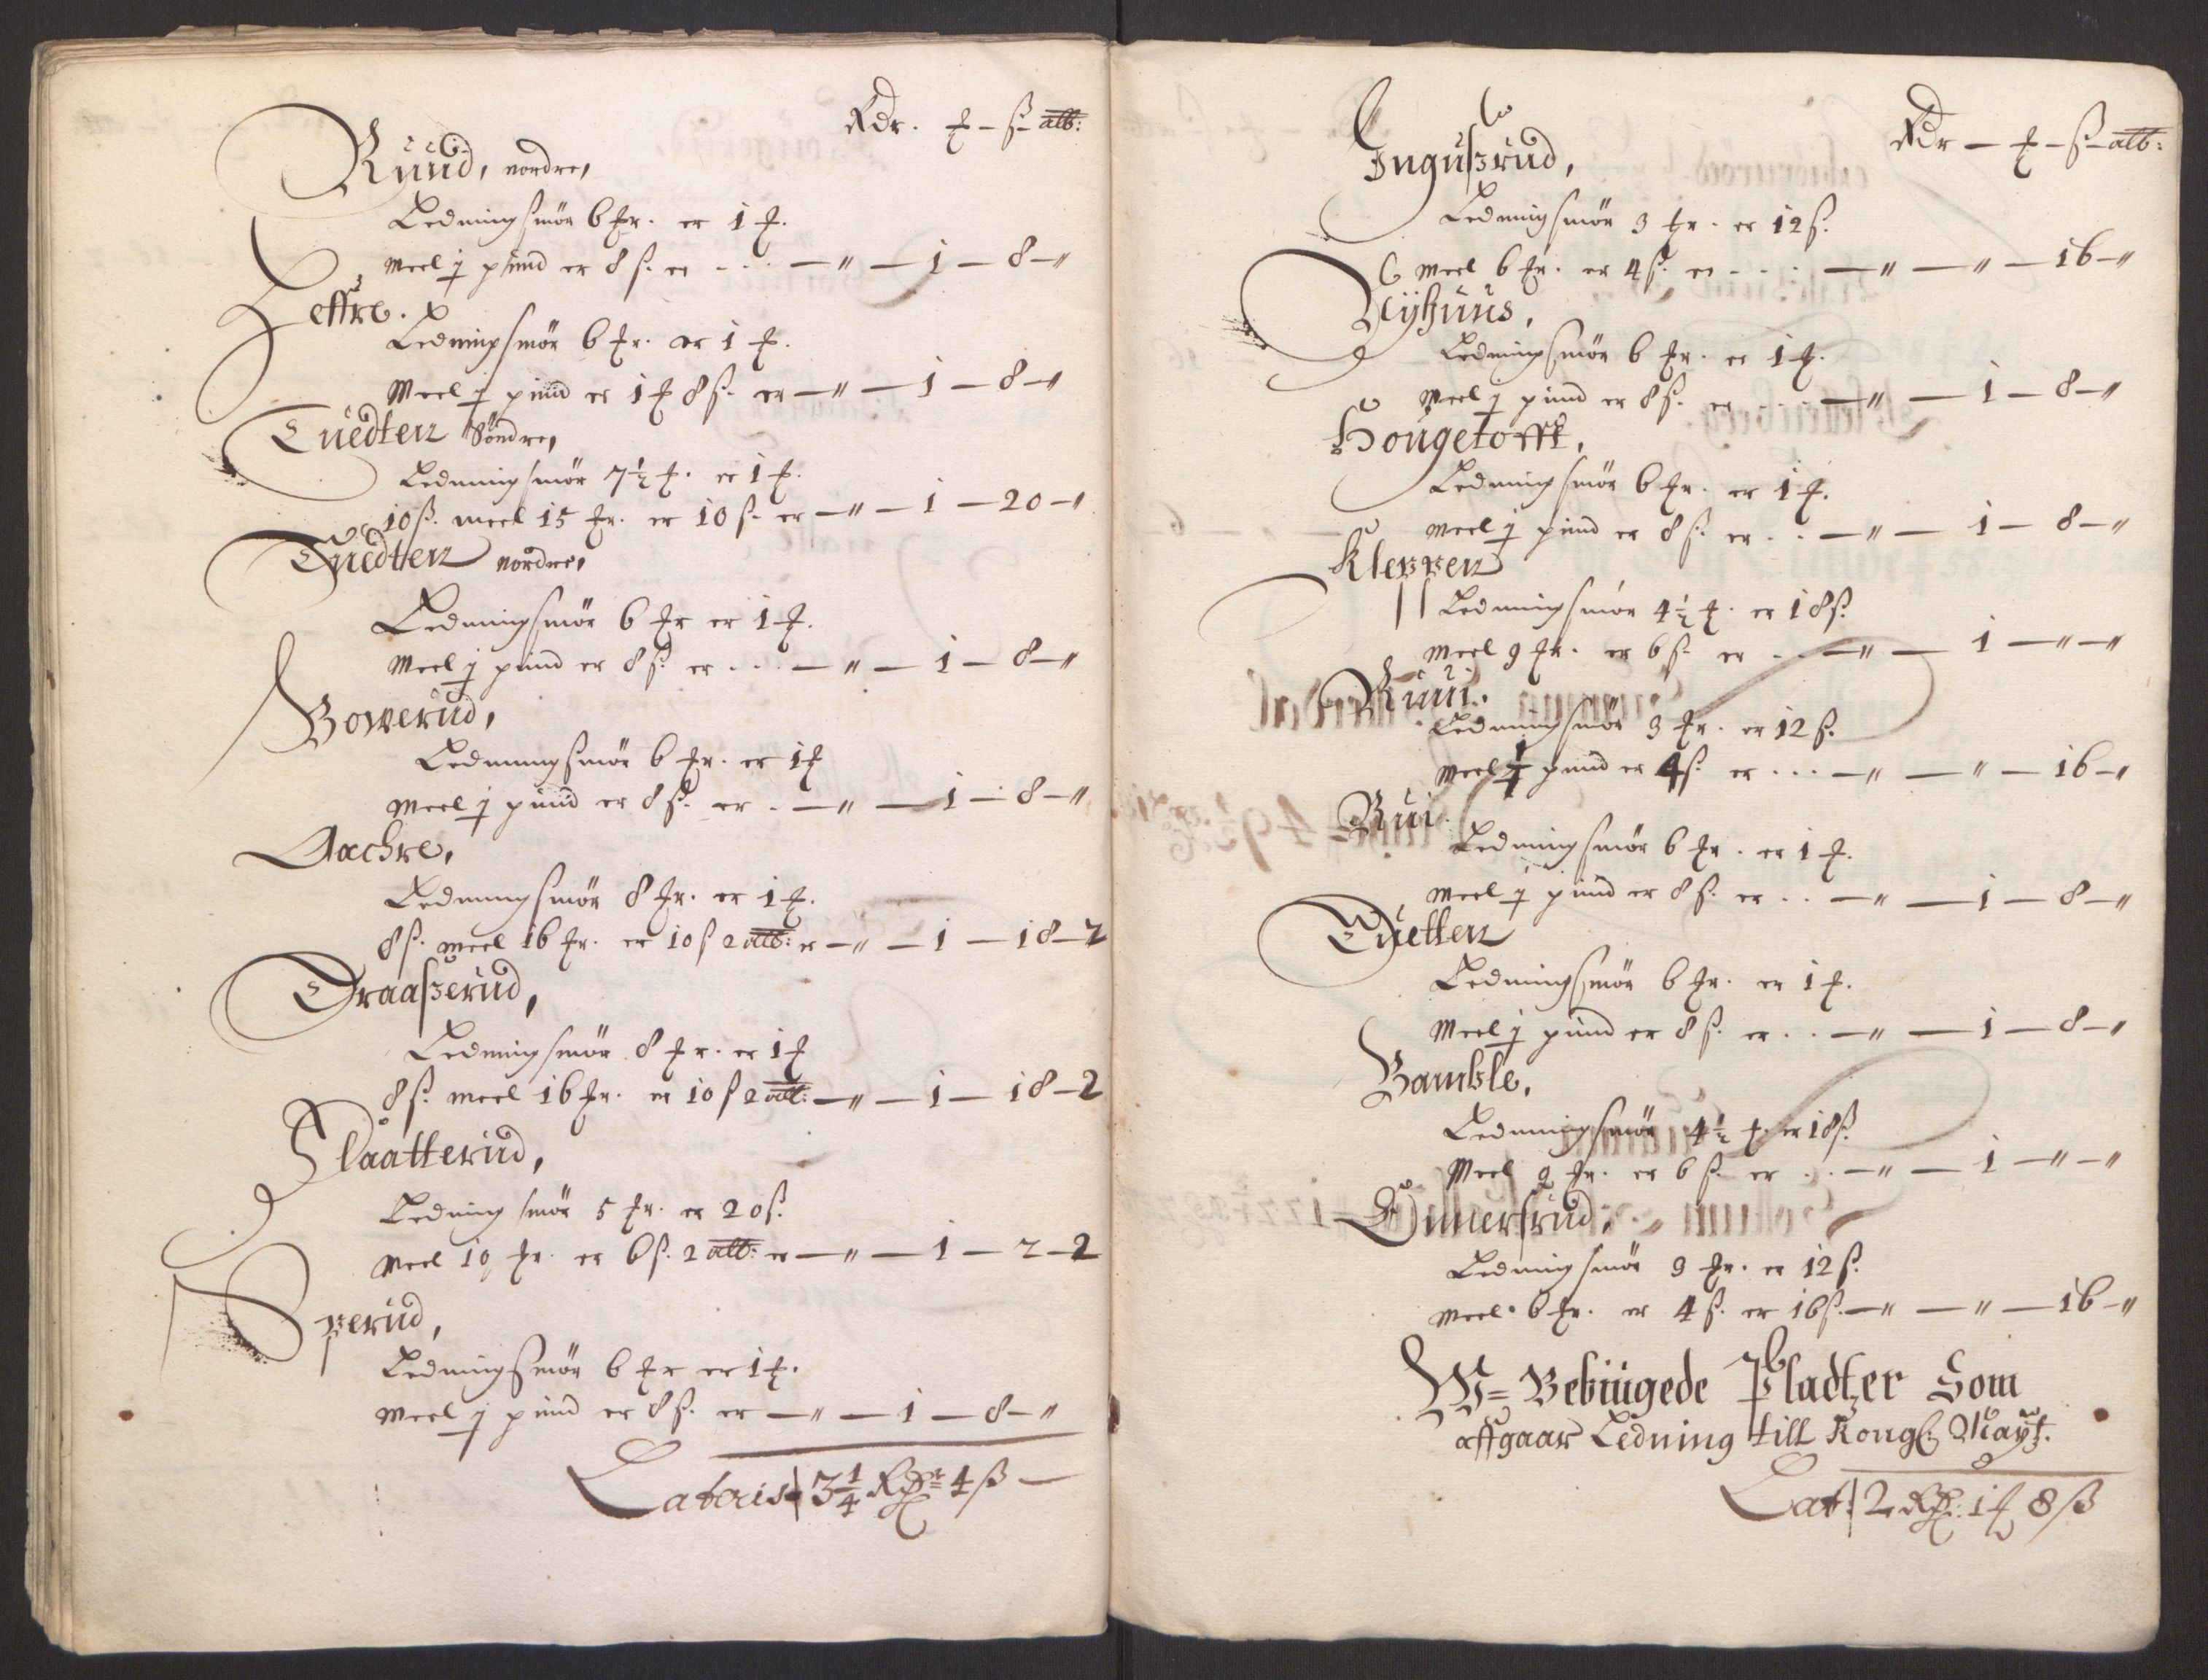 Rdr. ℔ – ß – alb:
Ruud, nordre,
Ledningsmör 6 ℔r. er 1 ℔.
Meel j pund er 8 ß. er - - - — " — 1 — 8 — "
Zeffre.
Ledningsmör 6 ℔r. er 1 ℔.
Meel j pund er 1 ℔ 8 ß. er — " — 1 — 8 — "
Tuedten Söndre,
Ledningsmör 7½ ℔. er 1 ℔.
10 ß. meel 15 ℔r. er 10 ß. er — " — 1 — 20 — "
Tuedten nordre,
Ledningsmör 6 ℔r er 1 ℔.
Meel j pund er 8 ß. er . . . — " — 1 — 8 — "
Bowerud,
Ledningsmör 6 ℔r. er 1 ℔
Meel j pund er 8 ß. er . — " — 1 — 8 — "
Aachre,
Ledningsmör 8 ℔r. er 1 ℔.
8 ß. meel 16 ℔r. er 10 ß 2 alb: er — " — 1 — 18 — 2
Traaßerud,
Ledningsmör 8 ℔r. er 1 ℔
8 ß. meel 16 ℔r. er 10 ß 2 alb: — " — 1 — 18 — 2
Slaatterud,
Ledningsmör 5 ℔r. er 20 ß.
Meel 10 ℔r. er 6 ß. 2 alb: er — " — 1 — 2 — 2
Sperud,
Ledningsmör 6 ℔r er 1 ℔.
Meel j pund er 8 ß. er — " — 1 — 8 — "
Lateris 3¼ Rdr 4 ß —
Rdr — ℔ – ß – alb:
Ingußrud,
Ledningsmör 3 ℔r. er 12 ß.
Meel 6 ℔r. er 4 ß. er - - - — " — " — 16 — "
Nyhuus,
Ledningsmör 6 ℔r. er 1 ℔.
Meel j pund er 8 ß. er . . . — " — 1 — 8 — "
Hougetofft,
Ledningsmör 6 ℔r. er 1 ℔.
Meel j pund er 8 ß. er . . — " — 1 — 8 — "
Kleppen
Ledningsmör 4½ ℔. er 18 ß.
Meel 9 ℔r. er 6 ß. er . . — " — 1 — " — "
Ruui.
Ledningsmör 3 ℔r. er 12 ß.
Meel pund er 4 ß. er . . . — " — " — 16 — "
Rui.
Ledningsmör 6 ℔r. er 1 ℔.
Meel j pund er 8 ß. er . . — " — 1 — 8 — "
Tuetten
Ledningsmör 6 ℔r. er 1 ℔.
Meel j pund er 8 ß. er . . — " — 1 — 8 — "
Bamble,
Ledningsmör 4½ ℔. er 18 ß.
Meel 9 ℔r. er 6 ß. er . . — " — 1 — " — "
Gunersrud,
Ledningsmör 3 ℔r. er 12 ß.
Meel. 6 ℔r. er 4 ß. er 16 ß. — " — " — 16 — "
W= Bebiugede Pladtzer Som
affgaar Ledning till Kongl. Mayt.
Lat: 2 Rdr. 1 ℔ 8 ß